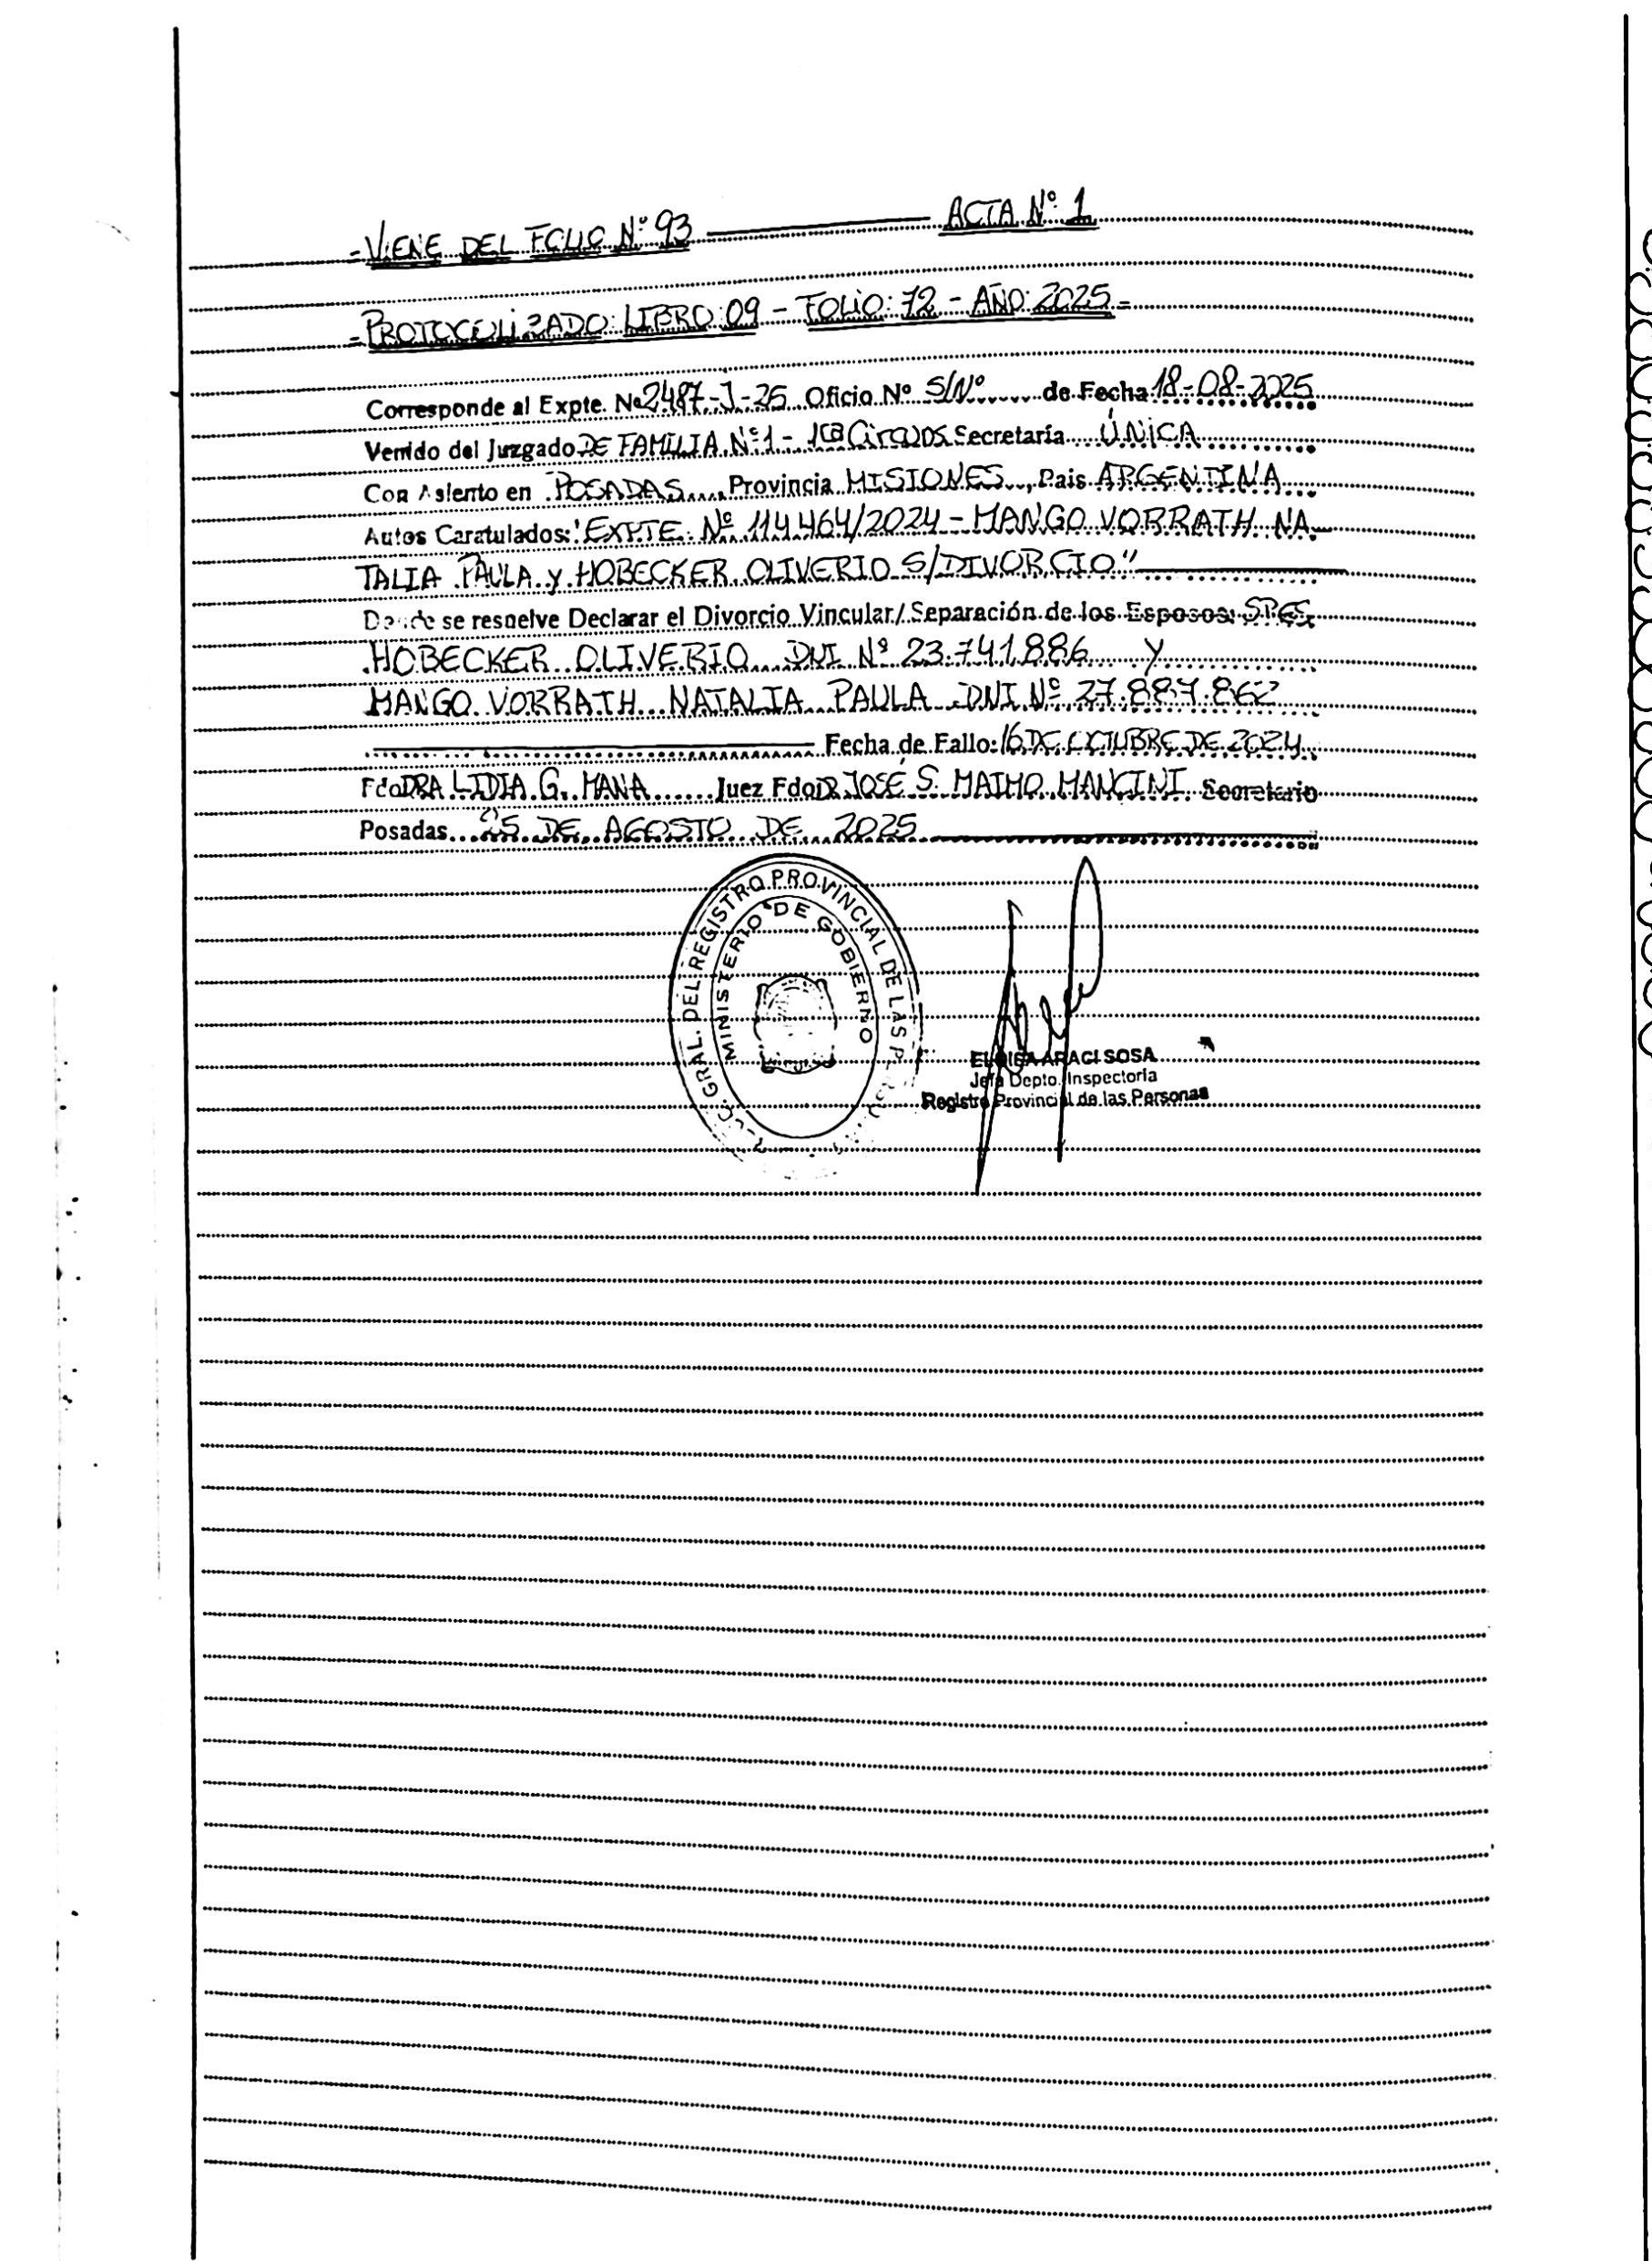 =VIENE DEL FOLIO Nº 93 ACTA Nº 1
=PROTOCOLIZADO: LIBRO: 09 - FOLIO: 72 - AÑO: 2025=
Corresponde al Expte. Nº 2487-J-25 Oficio Nº S/Nº de Fecha 18-08-2025
Venido del Juzgado DE FAMILIA Nº 1 - Secretaría ÚNICA
Con Asiento en POSADAS, Provincia MISIONES, Pais ARGENTINA
Autos Caratulados: "EXPTE. Nº 114464/2024 - MANGO VORRATH NA-
TALIA PAULA y HOBECKER OLIVERIO S/DIVORCIO"
Donde se resuelve Declarar el Divorcio Vincular/Separación de los Esposos: SRES
HOBECKER OLIVERIO DNI Nº 23.741.886 Y
MANGO VORRATH NATALIA PAULA DNI Nº 27.887.862
Fecha de Fallo: 16 DE OCTUBRE DE 2024
Fdo DRA LIDIA G. MANA Juez Fdo DR JOSÉ S. MAIMO MANCINI Secretario
Posadas 25 DE AGOSTO DE 2025
GRAL. DEL REGISTRO PROVINCIAL DE LAS
MINISTERIO DE GOBIERNO
ELOISA ARACI SOSA
Jefa Depto. Inspectoría
Registro Provincial de las Personas